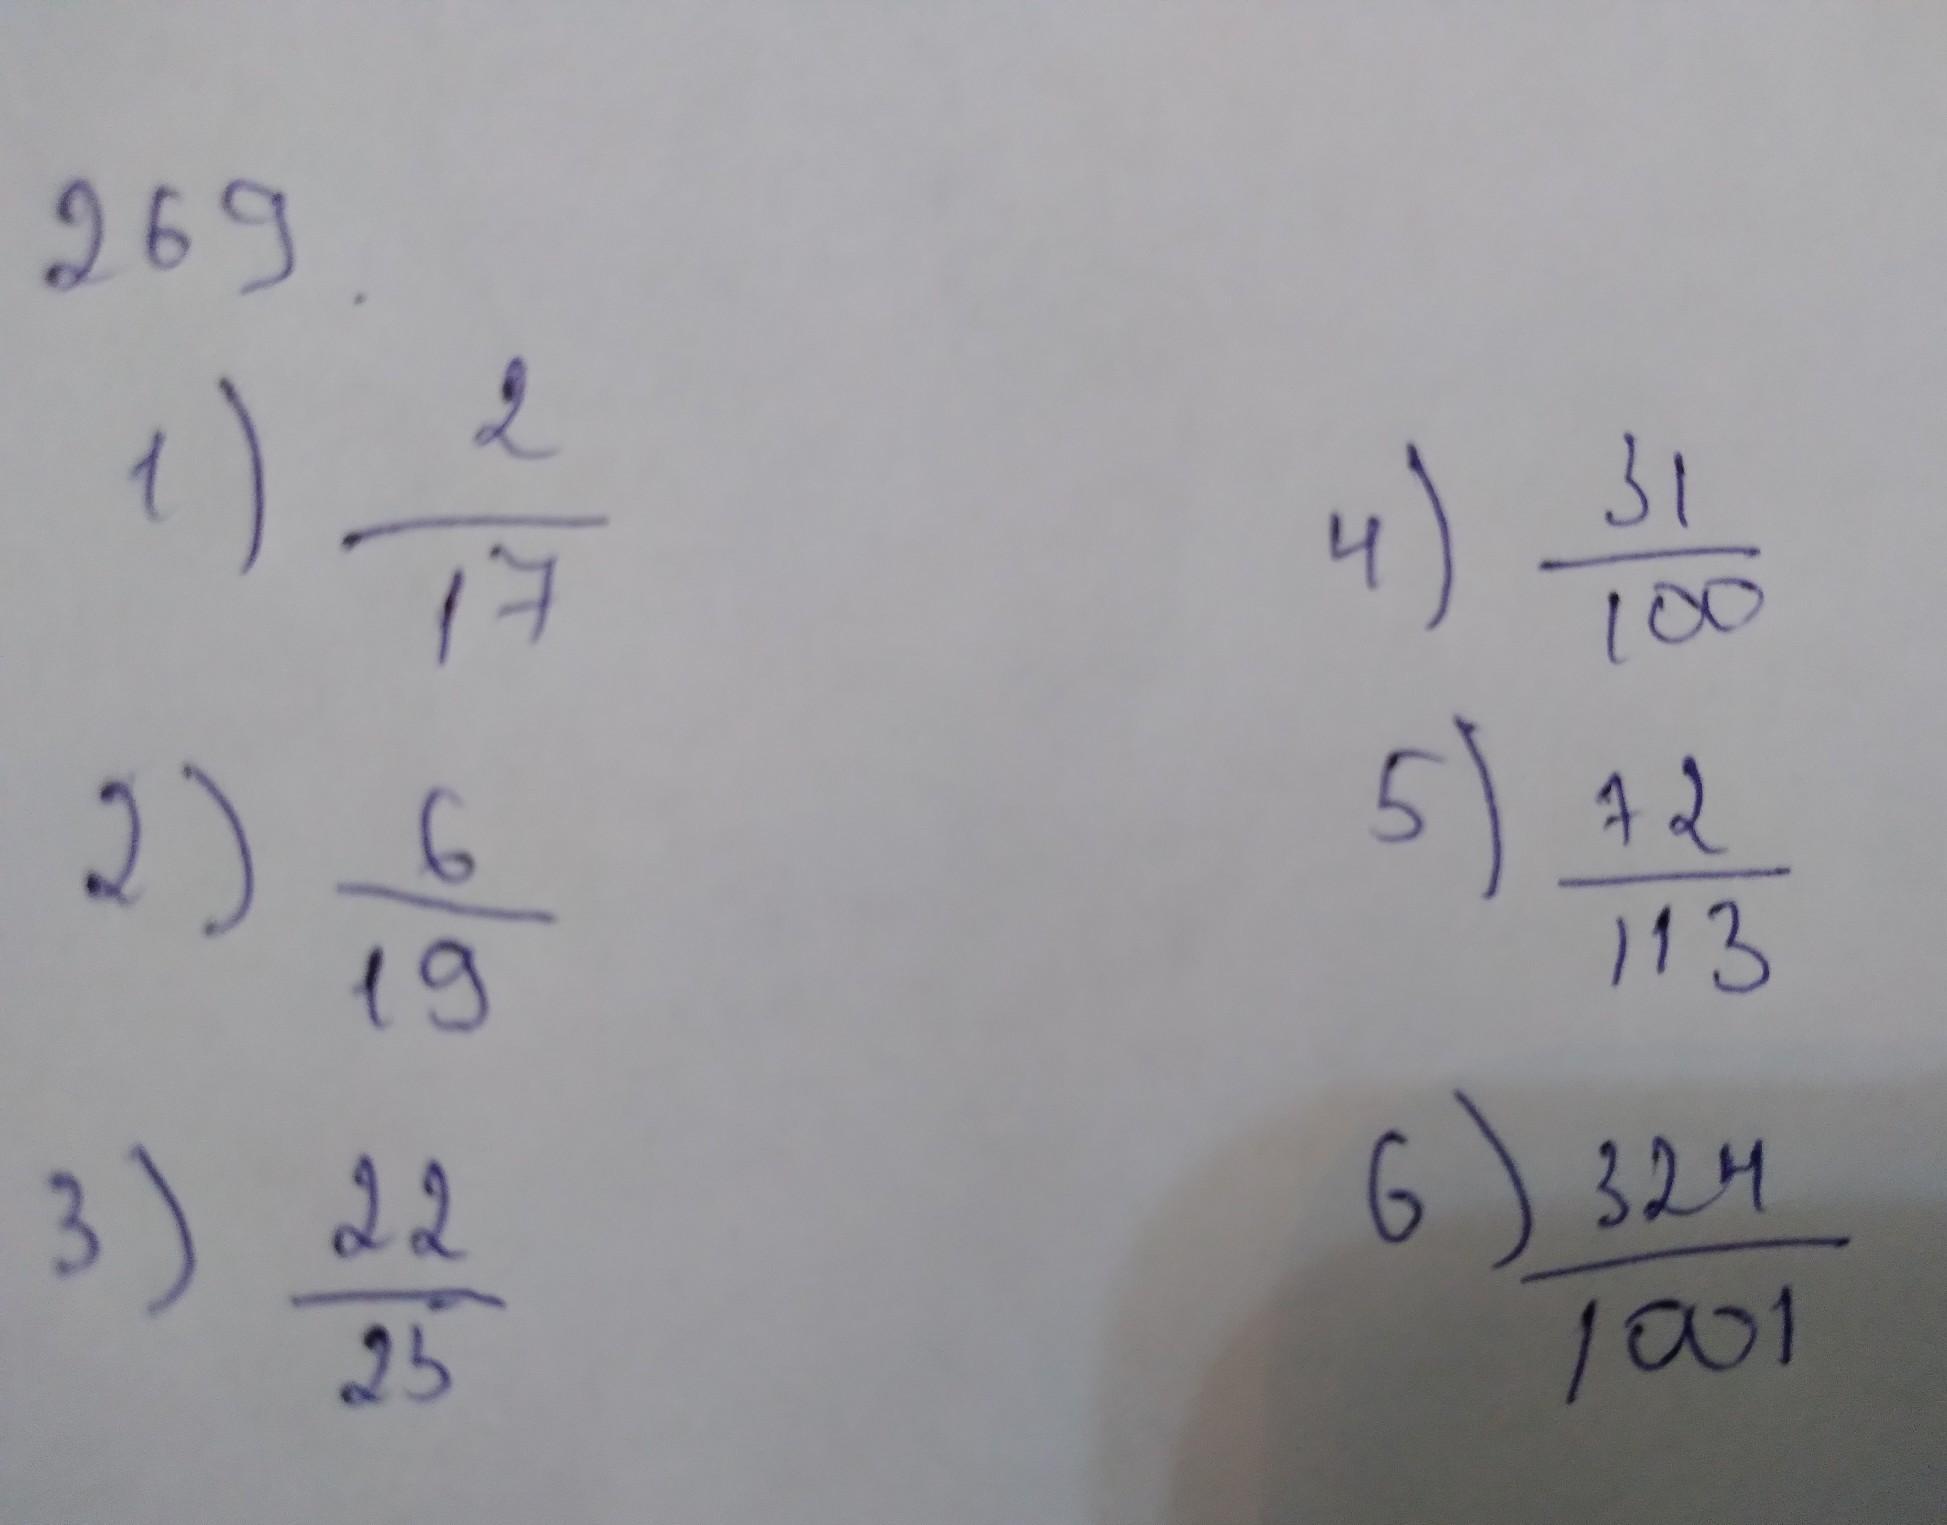 269.
1) 2/17
2) 6/19
3) 22/25
4) 31/100
5) 72/113
6) 324/1001